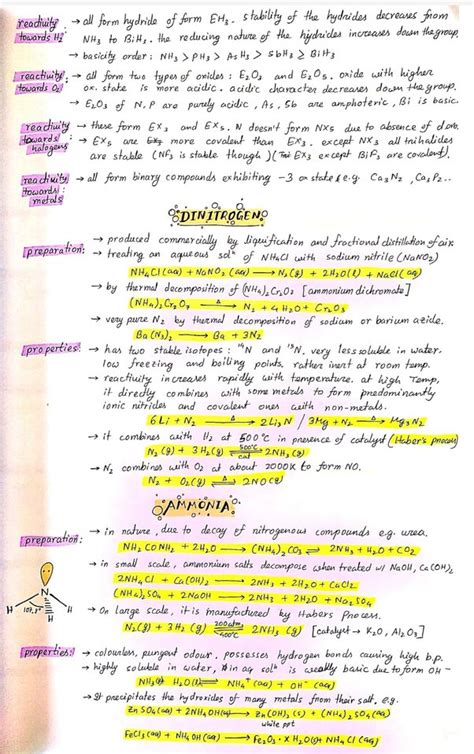 reactivity towards H₂: → all form hydride of form EH₃. stability of the hydrides decreases from
NH₃ to BiH₃. the reducing nature of the hydrides increases down the group.
→ basicity order: NH₃ > PH₃ > AsH₃ > SbH₃ ≥ BiH₃
reactivity towards O₂: → all form two types of oxides: E₂O₃ and E₂O₅. oxide with higher
ox. state is more acidic. acidic character decreases down the group.
→ E₂O₃ of N, P are purely acidic, As, Sb are amphoteric, Bi is basic.
reactivity towards halogens: → these form EX₃ and EX₅. N doesn't form NX₅ due to absence of d orb.
→ EX₅ are more covalent than EX₃. except NX₃ all trihalides
are stable (NF₃ is stable though) (EX₃ except BiF₃ are covalent).
reactivity towards metals: → all form binary compounds exhibiting -3 ox state e.g. Ca₃N₂, Ca₃P₂..
DINITROGEN
preparation: → produced commercially by liquification and fractional distillation of air.
→ treating an aqueous solⁿ of NH₄Cl with sodium nitrile (NaNO₂)
NH₄Cl (aq) + NaNO₂ (aq) ⟶ N₂(g) + 2H₂O(l) + NaCl (aq)
→ by thermal decomposition of (NH₄)₂Cr₂O₇ [ammonium dichromate]
(NH₄)₂Cr₂O₇ —Δ→ N₂ + 4H₂O + Cr₂O₃
→ very pure N₂ by thermal decomposition of sodium or barium azide.
Ba(N₃)₂ ⟶ Ba + 3N₂
properties: → has two stable isotopes: ¹⁴N and ¹⁵N. very less soluble in water.
low freezing and boiling points. rather inert at room temp.
→ reactivity increases rapidly with temperature. at high temp,
it directly combines with some metals to form predominantly
ionic nitrides and covalent ones with non-metals.
6Li + N₂ —Δ→ 2Li₃N / 3Mg + N₂ —Δ→ Mg₃N₂
→ it combines with H₂ at 500°C in presence of catalyst (Haber's process)
N₂(g) + 3H₂(g) ⇌ 500°C cat 2NH₃(g)
→ N₂ combines with O₂ at about 2000K to form NO.
N₂ + O₂(g) —Δ⇌ 2NO(g)
AMMONIA
preparation: → in nature, due to decay of nitrogenous compounds e.g. urea.
NH₂CONH₂ + 2H₂O ⟶ (NH₄)₂CO₃ ⇌ 2NH₃ + H₂O + CO₂
→ in small scale, ammonium salts decompose when treated w/ NaOH, Ca(OH)₂
2NH₄Cl + Ca(OH)₂ ⟶ 2NH₃ + 2H₂O + CaCl₂
(NH₄)₂SO₄ + 2NaOH ⟶ 2NH₃ + 2H₂O + Na₂SO₄
N
H H H
→ On large scale, it is manufactured by Habers Process.
N₂(g) + 3H₂(g) ⇌ 2NH₃(g) [catalyst → K₂O, Al₂O₃]
properties: → colourless, pungent odour. possesses hydrogen bonds causing high b.p.
→ highly soluble in water, in aq solⁿ is weakly basic due to form OH⁻
NH₃(g) + H₂O(l) ⇌ NH₄⁺(aq) + OH⁻(aq)
→ It precipitates the hydroxides of many metals from their salt. e.g.
ZnSO₄(aq) + 2NH₄OH(aq) ⟶ Zn(OH)₂(s) + (NH₄)₂SO₄(aq)
white ppt
FeCl₃(aq) + NH₄OH(aq) ⟶ Fe₂O₃·xH₂O(s) + NH₄Cl(aq)